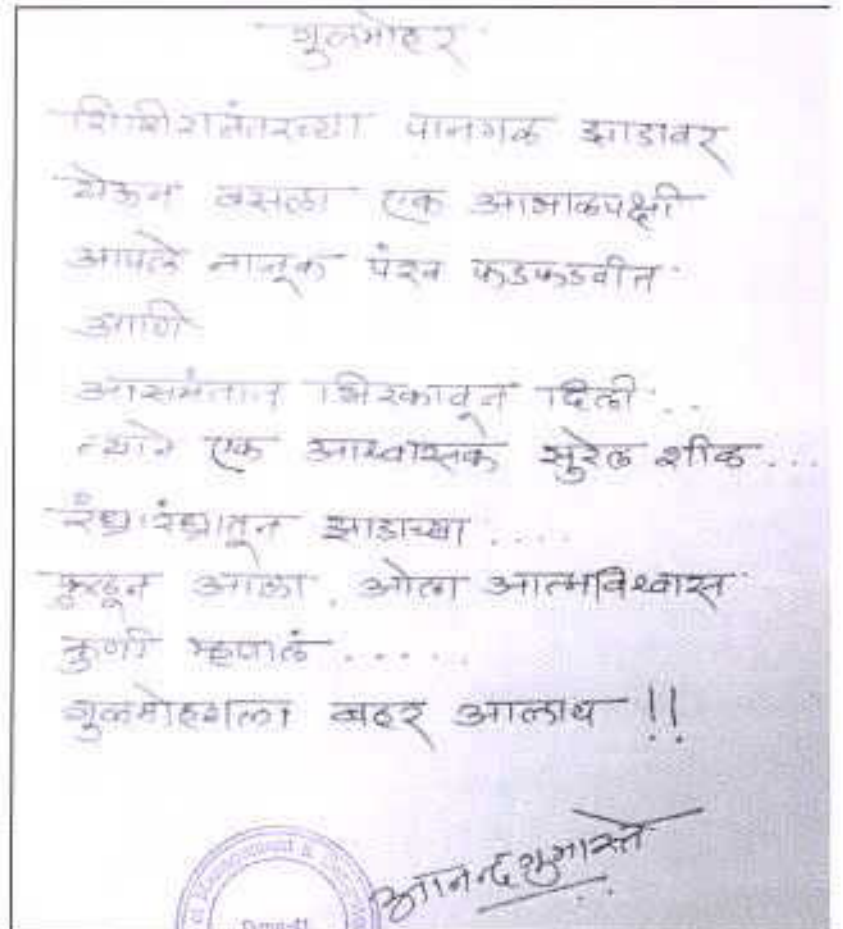 गुलमोहर
शिशिरानंतरच्या पानगळ झाडावर
येऊन बसला एक आभाळपक्षी
आपले नाजूक पंख फडफडवीत
आणि
आसमंतात भिरकावून दिली ..
त्याने एक आश्वासक सुरेल शीळ ...
रंध्रारंध्रातून झाडाच्या ....
फुटून आला, ओला आत्मविश्वास
कुणी म्हणालं ......
गुलमोहराला बहर आलाय !!
of Management &
आनन्द